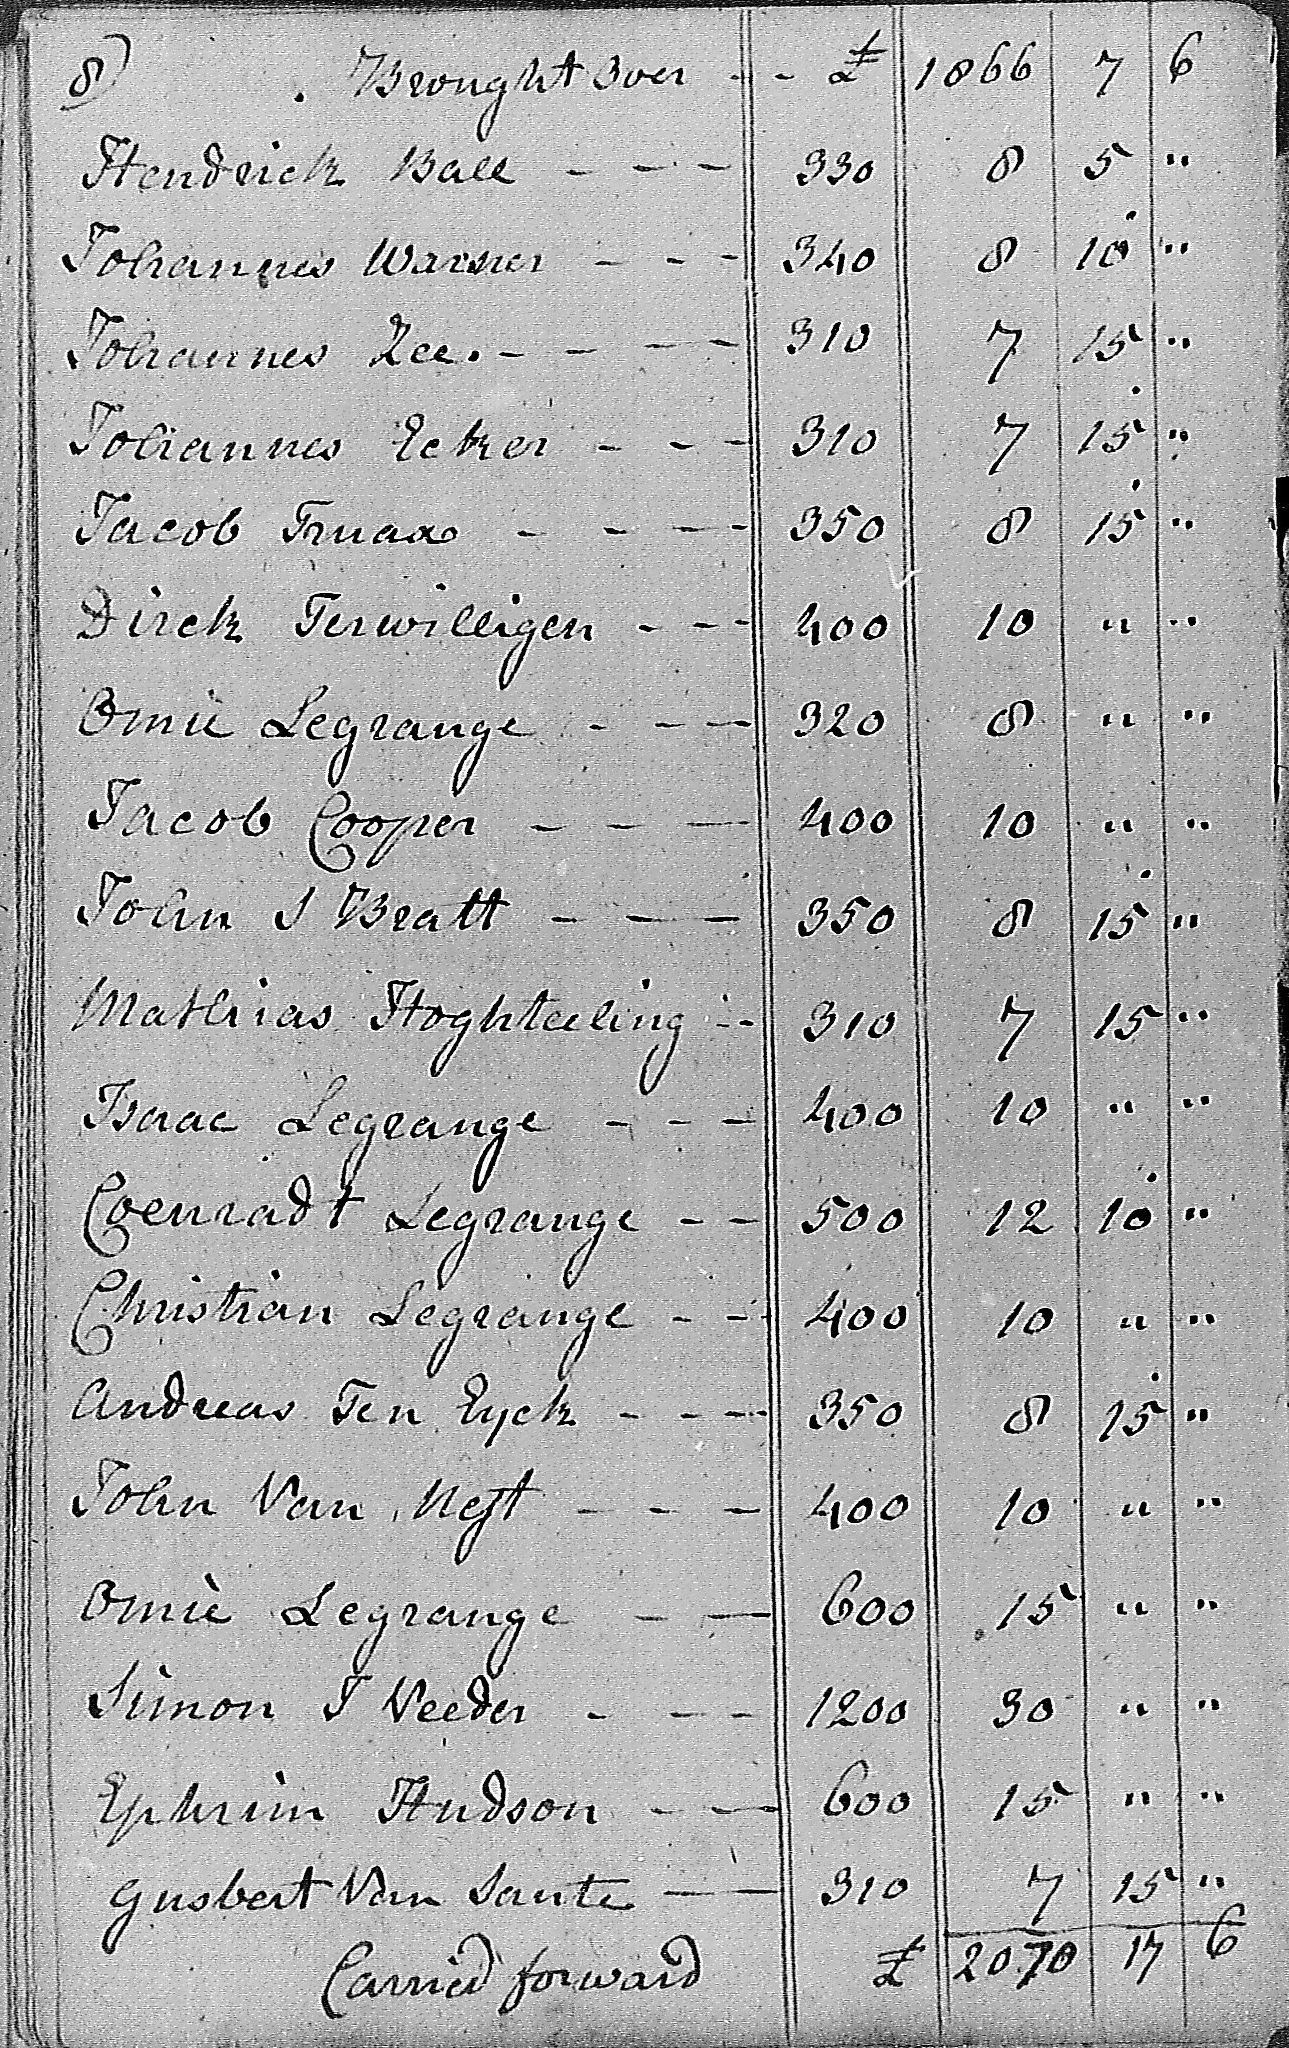 8) Brought Over - - £ 1866 7 6
Hendrick Ball - - - 330 8 5 "
Johannes Warner - - - 340 8 10 "
Johannes Zee. - - - - 310 7 15 "
Johannes Ecker - - - 310 7 15 "
Jacob Truax - - - - 350 8 15 "
Dirck Terwilligen - - - 400 10 " "
Omie Legrange - - - 320 8 " "
Jacob Cooper - - - 400 10 " "
John S Bratt - - - 350 8 15 "
Mathias Hoghteeling - - 310 7 15 "
Isaac Legrange - - - 400 10 " "
Coenradt Legrange - - 500 12 10 "
Christian Legrange - - 400 10 " "
Andreas Ten Eyck - - - 350 8 15 "
John Van Nest - - - 400 10 " "
Omiè Legrange - - 600 15 " "
Simon J Veeder - - - 1200 30 " "
Ephrim Hudson - - 600 15 " "
Gusbert Van Sante - - 310 7 15 "
Carried forward £ 2070 17 6